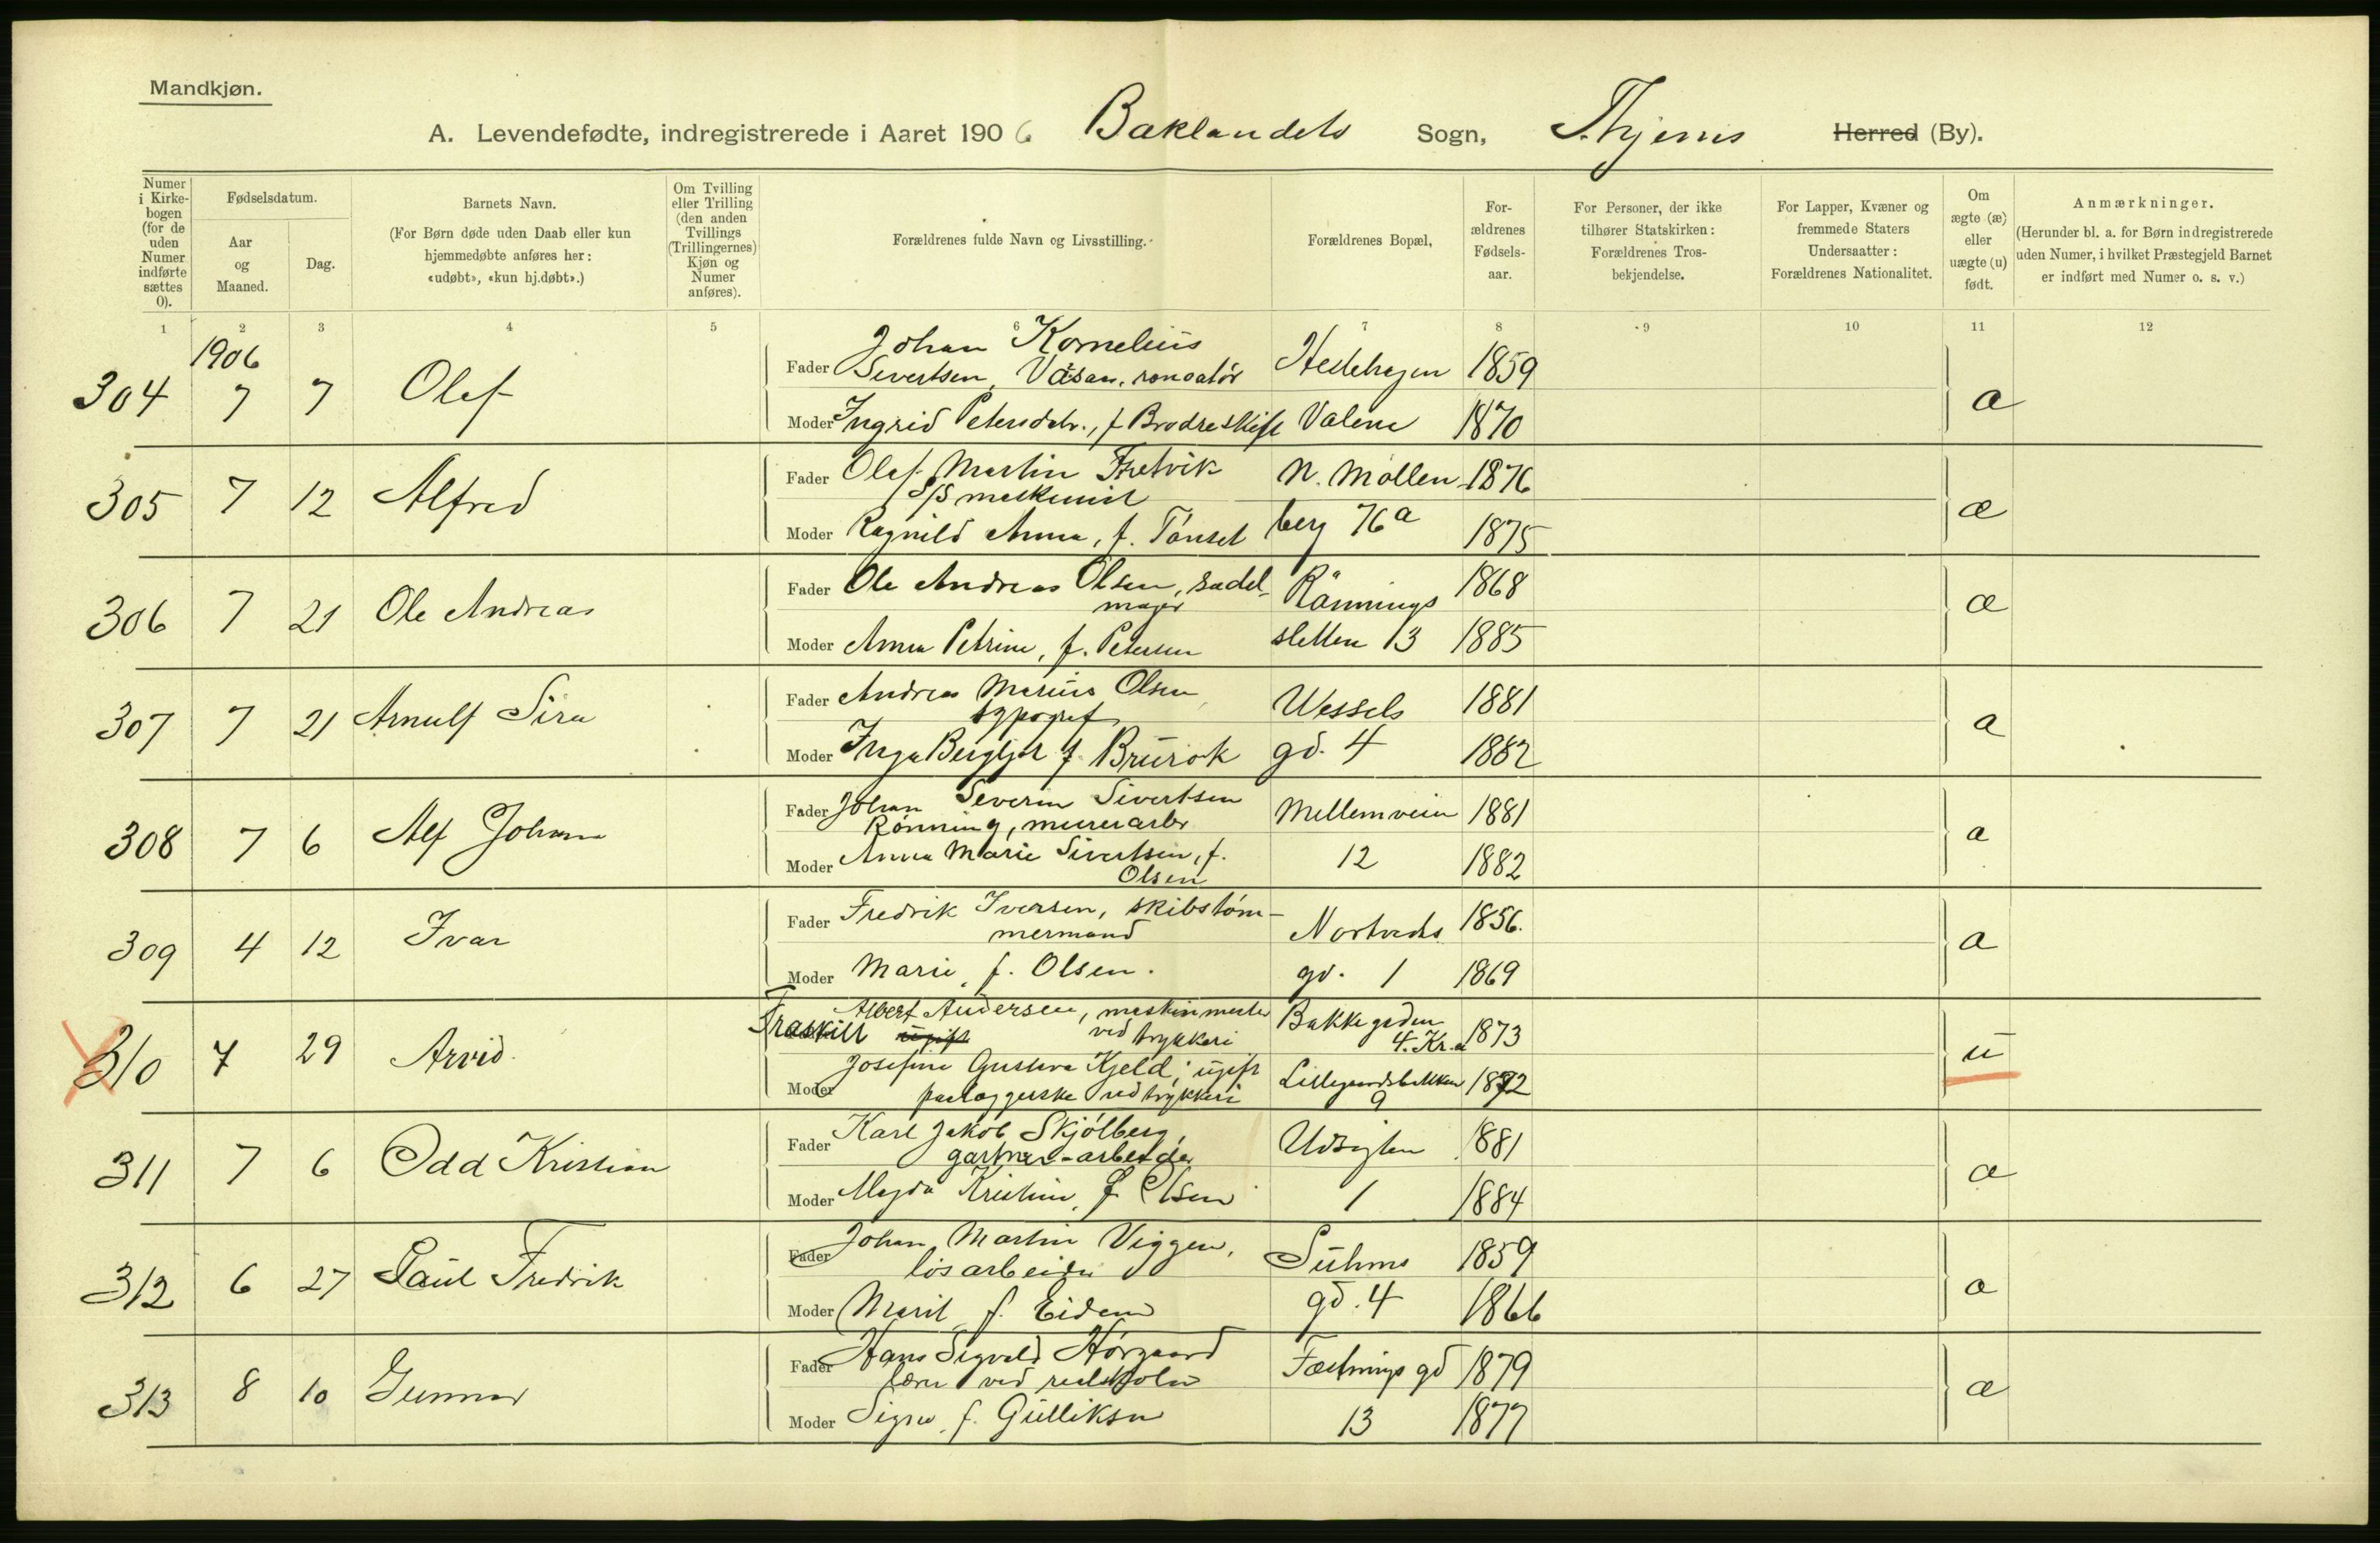 Mandkjøn.
A. Levendefødte, indregistrerede i Aaret 1906 Baklandets Sogn, Thjems Herred (By).
Numer i Kirkebogen (for de uden Numer indførte sættes 0).
Fødselsdatum.
Aar og Maaned.
Dag.
Barnets Navn.
(For Børn døde uden Daab eller kun hjemmedøbte anføres her: «udøbt», «kun hj.døbt».)
Om Tvilling eller Trilling (den anden Tvillings (Trillingernes) Kjøn og Numer anføres).
Forældrenes fulde Navn og Livsstilling.
Forældrenes Bopæl,
Forældrenes Fødselsaar.
For Personer, der ikke tilhører Statskirken: Forældrenes Trosbekjendelse.
For Lapper, Kvæner og fremmede Staters Undersaatter: Forældrenes Nationalitet.
Om ægte (æ) eller uægte (u) født.
Anmærkninger.
(Herunder bl. a. for Børn indregistrerede uden Numer, i hvilket Præstegjeld Barnet er indført med Numer o. s. v.)
1 2 3 4 5 6 7 8 9 10 11 12
1906
304 7 7 Olaf
Fader Johan Kornelius
Sivertsen, 1859
Moder Ingrid Petersdtr., f. Valene 1870
æ
305 7 12 Alfred
Fader Olaf Martin N. Møllen 1876
S/S maskinist
Moder Ragnild Anna, f. Tønset berg 76a 1875
æ
306 7 21 Ole Andreas
Fader Ole Andreas Olsen, sadel- Rønnings 1868
mager
Moder Anna Petrine, f. Petersen sletten 13 1885
æ
307 7 21 Arnulf
Fader Andreas Marius Olsen, Wessels 1881
typograf
Moder Inga Bergljot f. Brurok gd. 4 1882
æ
308 7 6 Alf Johan
Fader Johan Severin Sivertsen Mellemveien 1881
Rønning, murerarb
Moder Anna Marie Sivertsen, f. 12 1882
Olsen
æ
309 4 12 Ivar
Fader Fredrik Iversen, skibstøm- 1856.
mermand
Moder Marie, f. Olsen. gd. 1 1869
æ
310 7 29 Arvid.
Albert Andersen, maskinmester Bakkegaden
Fraskilt ugift ved trykkeri 1873
Josefine Gustava Kjeld, ugift Lillegaardsbakken 1872
Moder paalæggerske ved trykkeri 9
u
311 7 6 Odd Kristian
Fader Karl Jakob Skjølberg, Udsigten 1881
gartner-arbeider
Moder Magda Kristine, f. Olsen 1 1884
æ
312 6 27 Paul Fredrik
Fader Johan Martin Viggen, Suhms 1859
løsarbeider
Moder Marit, f. Eidem gd. 4 1866
æ
313 8 10 Gunnar
Fader Hans Sigvald Hørgaard Fæstnings gd 1879
lærer ved realskolen
Moder Signe, f. Gulliksen 13 1877
æ